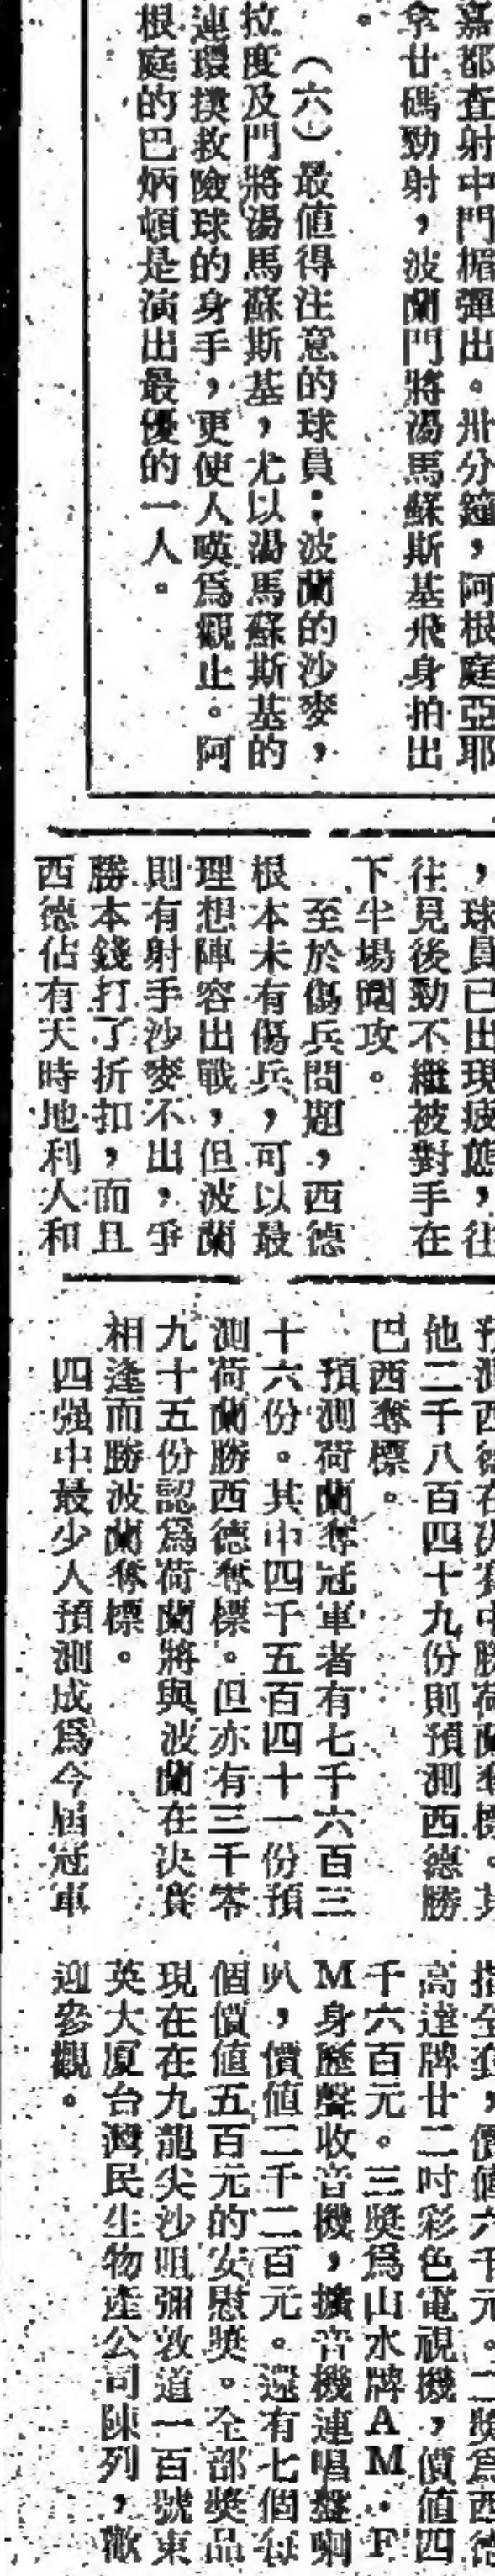 嘉都查射中門楣彈出。卅分鐘,阿根庭亞耶
拿廿碼勁射,波蘭門將湯馬蘇斯基飛身拍出
。
(六)最值得注意的球員:波蘭的沙麥,
拉度及門將湯馬蘇斯基,尤以湯馬蘇斯基的
連環撲救險球的身手,更使人嘆為觀止。阿
根庭的巴炳頓是演出最優的一人。
,球員已出現疲態,往
往見後勁不繼被對手在
下半場圍攻。
至於傷兵問題,西德
根本未有傷兵,可以最
理想陣容出戰,但波蘭
則有射手沙麥不出,爭
勝本錢打了折扣,而且
西德佔有天時地利人和
預測西德在決賽中勝荷蘭奪標。其
他二千八百四十九份則預測西德勝
巴西奪標。
預測荷蘭奪冠軍者有七千六百三
十六份。其中四千五百四十一份預
測荷蘭勝西德奪標。但亦有三千零
九十五份認為荷蘭將與波蘭在決賽
相逢而勝波蘭奪標。
四強中最少人預測成為今屆冠軍
全套,價值六千元。二獎為西德
高達牌廿二吋彩色電視機,價值四
千六百元。三獎為山水牌AM·F
M身歷聲收音機,擴音機連唱盤喇
叭,價值二千二百元。還有七個每
個價值五百元的安慰獎。全部獎品
現在在九龍尖沙咀彌敦道一百號東
英大廈台灣民生物產公司陳列,歡
迎參觀。